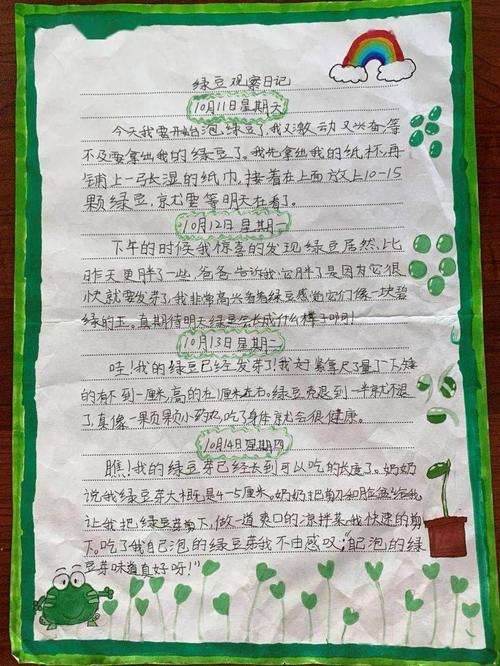 绿豆观察日记
10月11日星期天
今天我要开始泡绿豆了,我又激动又兴奋,等
不及要拿出我的绿豆了。我先拿出我的纸杯,再
铺上一张湿的纸巾,接着在上面放上10-15
颗绿豆,就要等明天在看了。
10月12日星期一
下午的时候我惊喜的发现绿豆居然比
昨天更胖了一些,爸爸告诉我,它胖了是因为它很
快就要发芽了,我非常高兴看着绿豆感觉它们像一块碧
绿的玉。真期待明天绿豆会长成什么样子呀!
10月13日星期二
哇!我的绿豆已经发芽了!我赶紧拿尺子量了一下,矮
的有不到一厘米,高的在1厘米左右。绿豆壳退到一半就不退
了,真像一颗颗小药丸,吃了身体就会很健康。
10月14日星期四
瞧!我的绿豆芽已经长到可以吃的长度了。奶奶
说我绿豆芽大概是4-5厘米。奶奶把剪刀和脸盆给我,
让我把绿豆芽剪下,做一道爽口的凉拌菜。我快速的剪
下。吃了我自己泡的绿豆芽我不由感叹:“自己泡的绿
豆芽味道真好呀!”